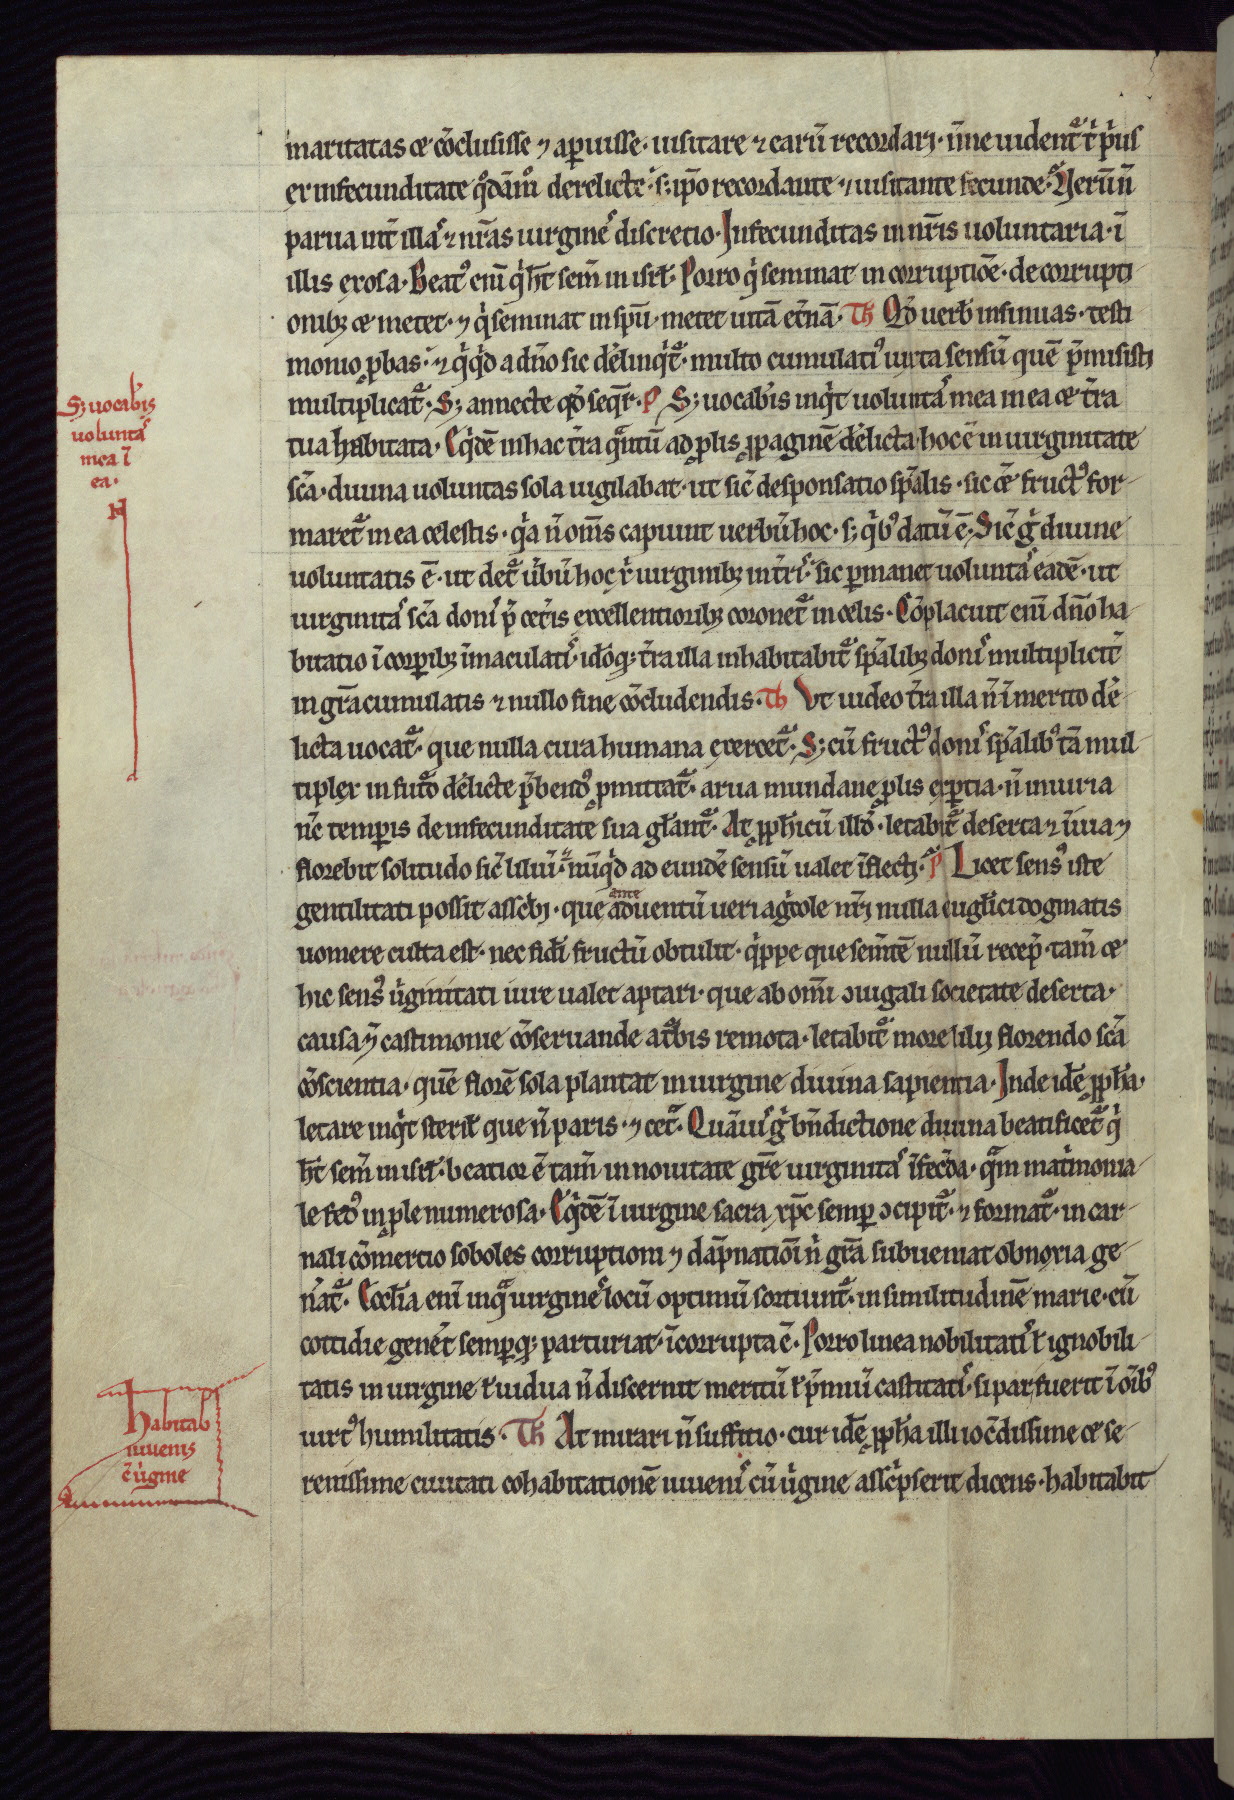 maritatas ⁊ cōclusisse ⁊ aꝑuisse· uisitare ⁊ earū recordari· n̄ne uident᷑ t' p'us
ex infecunditate q̊dāmͦ derelicte· s; ip̄o recordante ⁊ uisitante fecunde· Verū n̄
parua int̄ illaˢ ⁊ nr̄as uirgineˢ discretio· Infecunditas in nr̄is uoluntaria· ī
illis exosa· Beatꝰ eni q' h̄t sem̄ in isrł· Porro q' seminat in corruptiōe· de corrupti
onibꝫ ⁊ metet· ⁊ q' seminat in spū· metet uitā et̄nā· Th Qd̄ uerb̄ insinuas· testi
monio ꝓbas· ⁊ q'q'd a dn̄o sic delinq't᷑· multo cumulatiꝰ iuxta sensū quē p̄misisti
multiplicat᷑· S; annecte qd̄ seqr̄· P S; uocab'is inq't uoluntaˢ mea in ea ⁊ t̄ra
tua habitata· Eq'dē in hac t̄ra q̄ntū ad ꝓlis ꝓpaginē d'elicta· hoc ē in uirginitate
sc̄a· diuina uoluntas sola uigilabat· ut sic̄ desponsatio sp̄alis· sic ⁊ fructꝰ for
maret᷑ in ea celestis· q'a n̄ om̄s capiunt uerbū hoc· s; q'bꝰ datū ē· Sic̄ g' diuine
uoluntatis ē· ut det᷑ ūbū hoc ī uirginibꝫ in t̄riˢ· sic ꝑmanet uoluntaˢ eadē· ut
uirginitaˢ sc̄a doniˢ p̄ cet̄is excellentioribꝫ coronet᷑ in celis· Cōplacuit eni dn̄o ha
bitatio ī corꝑibꝫ īmaculatiˢ· idōqꝫ t̄ra illa inhabitabit᷑ sp̄alibꝫ doniˢ multiplicit̄
in gr̄a cumulatis ⁊ nullo fine cōcludendis· Th Vt uideo t̄ra illa n̄ īmerito d'e
licta uocat᷑· que nulla cura humana exercet᷑· S; cū fructꝰ doniˢ sp̄alibꝰ tā mul
tiplex in fut̄o d'elicte p̄bendꝰ ꝓmittat᷑· arua mundane ꝓlis exꝑtia· n̄ iniuria
nc̄ temꝑis de infecunditate sua gl̄ant᷑· At ꝓph̄icū illd̄· letabit᷑ deserta ⁊ īuia ⁊
florebit solitudo sic̄ lilīū· nūq'd ad eundē sensū ualet īflecti· P Licet sensꝰ iste
gentilitati possit ascͥbi· que ante aduentū ueri ag'cole nr̄i nulla euglici dogmatis
uomere culta est· nec fidī fructū obtulit· q'ppe que sem̄tē nullū recep̄· tam̄ ⁊
hic sensꝰ ūginitati iure ualet aptari· que ab om̄i ↄiugali societate deserta·
causa ⁊ castimonie cōseruande at̄bis remota· letabit᷑ more lilij florendo sc̄a
cōscientia· quē florē sola plantat in uirgine diuina sapientia· Inde idē ꝓph̄a·
letare inq't sterił que n̄ paris· ⁊ cet᷑· Quāuiˢ g' bn̄dictione diuina beatificet᷑ q'
h̄t sem̄ in isrł· beatior ē tam̄ in nouitate gr̄e uirginitaˢ īfec̄da· q̄m mat'monia
le fedꝰ in ꝓle numerosa· Eq'dē ī uirgine sacra xp̄c semꝑ ↄcipit᷑ ⁊ format᷑· in car
nali cōmercio soboles corruptioni ⁊ dāpnatiōi n' gr̄a subueniat obnoxia ge
n̄at᷑· Eccl̄ia eni inq̄ uirgineˢ locū optimū sortiunt᷑· in similitudinē marie· cū
cottidie genet̄ semꝑqꝫ parturiat· īcorrupta ē· Porro linea nobilitatiˢ ł ignobili
tatis in uirgine ł uidua n̄ discernit meritū ł p̄miū castitatiˢ· si par fuerit ī oībꝰ
uirtꝰ humilitatis· Th At mirari n̄ suffitio· cur idē ꝓph̄a illi ioc̄dissime ⁊ se
renissime ciuitati cohabitationē iuueniˢ cū ūgine asc'pserit dicens· habitabit
S; uocab'is
uoluntaˢ
mea ī
ea·
Habitab
iuuenis
c̄ ūgine